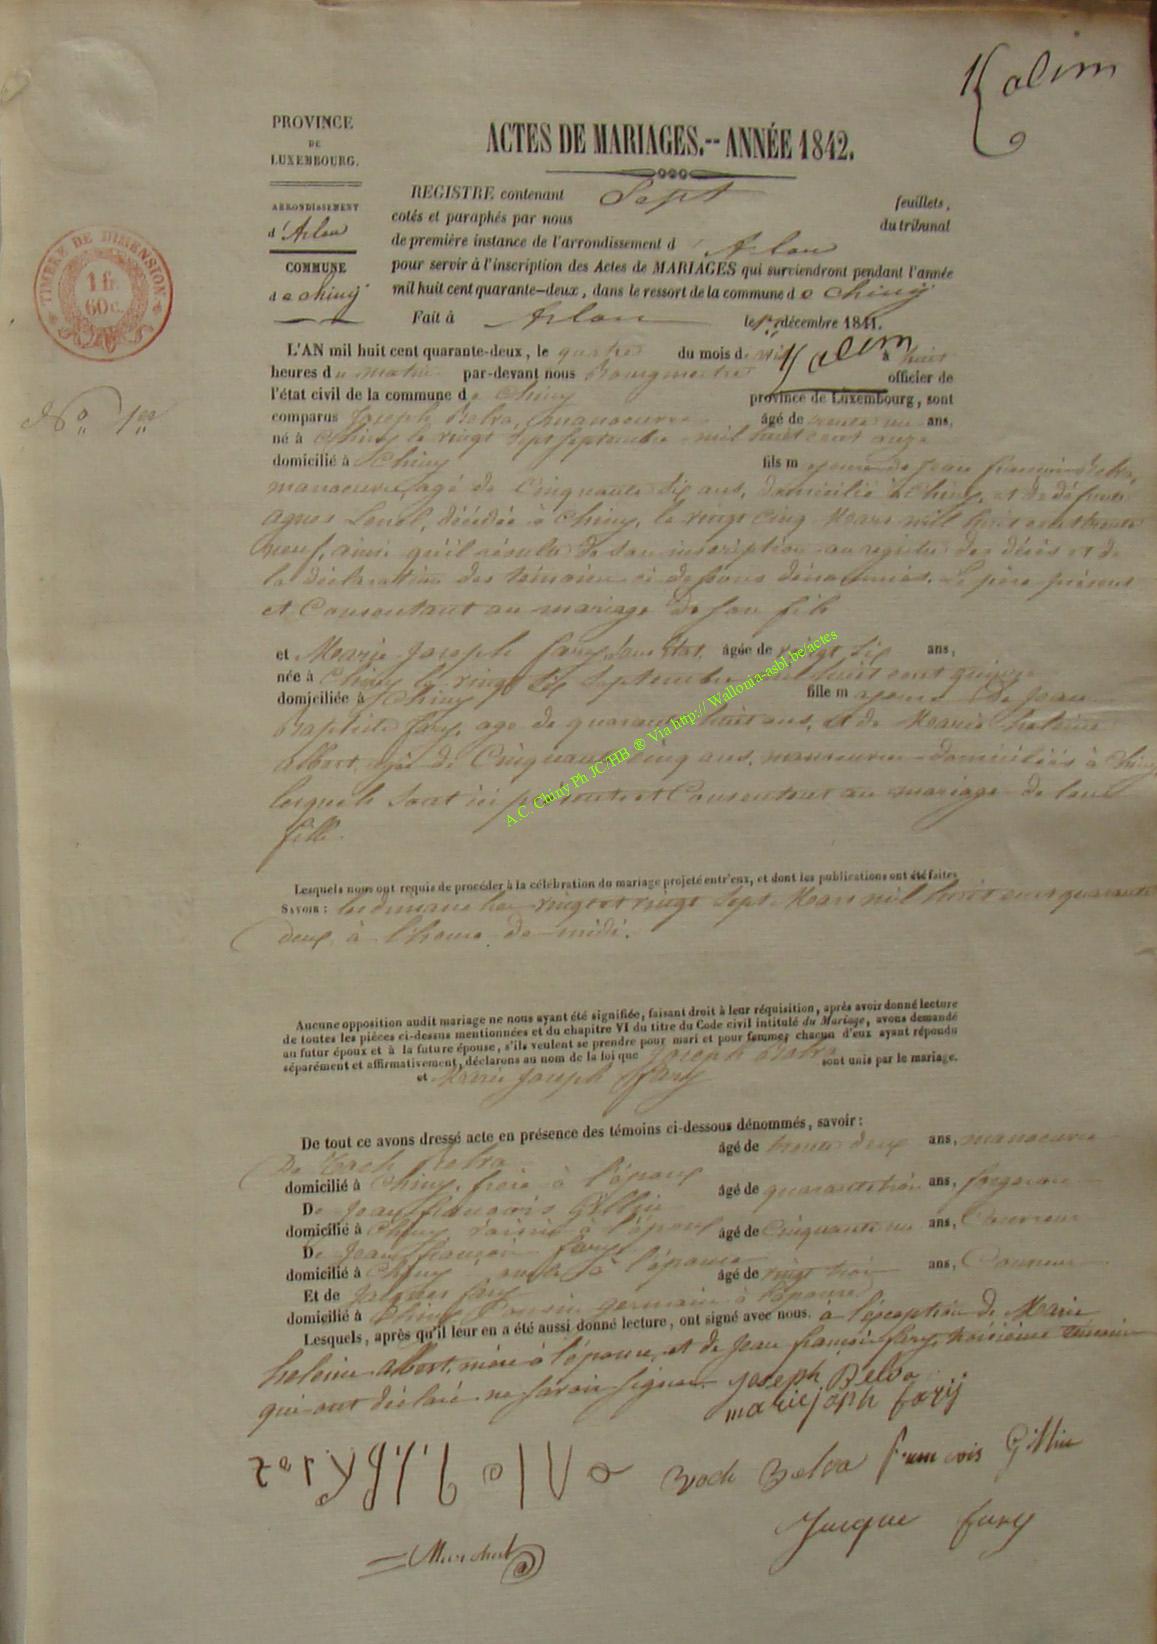 Kalim
PROVINCE
DE
LUXEMBOURG.
ARRONDISSEMENT
d'Arlon
COMMUNE
de Chiny
TIMBRE DE DIMENSION
1 fr.
60 c.
ACTES DE MARIAGES.-- ANNÉE 1842.
REGISTRE contenant Sept feuillets,
cotés et paraphés par nous du tribunal
de première instance de l'arrondissement d'Arlon
pour servir à l'inscription des Actes de MARIAGES qui surviendront pendant l'année
mil huit cent quarante-deux, dans le ressort de la commune de Chiny
Fait à Arlon le 1er décembre 1841.
Kalim
No 1er
L'AN mil huit cent quarante-deux, le quatre du mois d à huit
heures du matin par-devant nous Bourgmestre officier de
l'état civil de la commune de Chiny province de Luxembourg, sont
comparus Joseph Belva, manoeuvre âgé de trente un ans,
né à Chiny le vingt sept septembre mil huit cent onze
domicilié à Chiny fils majeur de Jean françois Belva,
manoeuvre, agé de Cinquante six ans, domicilié à Chiny, et de défunte
agnes, décédée à Chiny, le vingt cinq Mars mill huit cent trente
neuf, ainsi qu'il résulte de son inscription au registre des décès et de
la déclaration des témoins ci dessous dénommés. Le père présent
et Consentant au mariage de son fils
et Marie Joseph fary, sans état, âgée de vingt six ans,
née à Chiny le vingt six Septembre mil huit cent quinze
domiciliée à Chiny fille majeure de Jean
Baptiste fary, age de quarante huit ans, et de Marie heleine
albert, agée de Cinquante cinq ans, manoeuvres domiciliés à Chiny
lesquels sont ici présents et Consentant au mariage de leur
fille.
A.C. Chiny Ph JC/HB ® Via http://Wallonia-asbl.be/actes
Lesquels nous ont requis de procéder à la célébration du mariage projeté entr'eux, et dont les publications ont été faites
SAVOIR : les dimanches vingt et vingt Sept Mars mil huit cent quarante
deux à l'heure de midi.
Aucune opposition audit mariage ne nous ayant été signifiée, faisant droit à leur réquisition, après avoir donné lecture
de toutes les pièces ci-dessus mentionnées et du chapitre VI du titre du Code civil intitulé du Mariage, avons demandé
au futur époux et à la future épouse, s'ils veulent se prendre pour mari et pour femme; chacun d'eux ayant répondu
séparément et affirmativement, déclarons au nom de la loi que Joseph Belva
et Marie Joseph fary sont unis par le mariage.
De tout ce avons dressé acte en présence des témoins ci-dessous dénommés, savoir :
De Belva âgé de trente deux ans, manoeuvre
domicilié à Chiny, frere à l'époux
De Jean françois Gillin âgé de quarante trois ans, forgeron
domicilié à Chiny voisin à l'époux
De Jean françois fary âgé de Cinquante un ans,
domicilié à Chiny oncle à l'épouse
Et de Jacques fary âgé de vingt trois ans,
domicilié à Chiny Cousin germain à l'épouse
Lesquels, après qu'il leur en a été aussi donné lecture, ont signé avec nous. à l'éxception de Marie
heleine albert, mère à l'épouse, et de Jean françois fary, troisième témoin
qui ont déclaré ne savoir signer. Joseph Belva
mariejoseph fary
Belva francois Gillin
Jacque fary